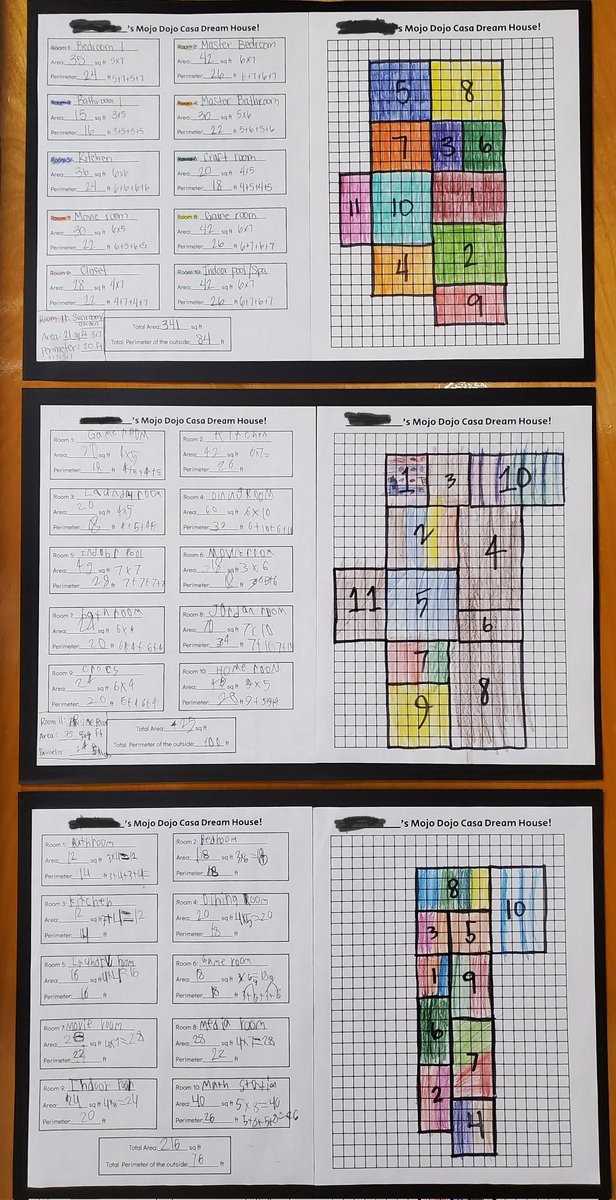 's Mojo Dojo Casa Dream House!
Room 1: Bedroom 1
Area: 35 sq ft 5x7
Perimeter: 24 ft 5+7+5+7
Room 2: Master Bedroom
Area: 42 sq ft 6x7
Perimeter: 26 ft 6+7+6+7
Room 3: Bathroom 1
Area: 15 sq ft 3x5
Perimeter: 16 ft 3+5+3+5
Room 4: Master Bathroom
Area: 30 sq ft 5x6
Perimeter: 22 ft 5+6+5+6
Room 5: Kitchen
Area: 36 sq ft 6x6
Perimeter: 24 ft 6+6+6+6
Room 6: Craft room
Area: 20 sq ft 4x5
Perimeter: 18 ft 4+5+4+5
Room 7: Movie room
Area: 30 sq ft 6x5
Perimeter: 22 ft 6+5+6+5
Room 8: Game room
Area: 42 sq ft 6x7
Perimeter: 26 ft 6+7+6+7
Room 9: Closet
Area: 28 sq ft 4x7
Perimeter: 22 ft 4+7+4+7
Room 10: Indoor pool/Spa
Area: 42 sq ft 6x7
Perimeter: 26 ft 6+7+6+7
Room 11: Sunroom
Area: 21 sq ft 3x7
Perimeter: 20 ft
Total Area: 341 sq ft
Total Perimeter of the outside: 84 ft
's Mojo Dojo Casa Dream House!
5 8
7 3 6
11 10 1
4 2
9
's Mojo Dojo Casa Dream House!
Room 1: Game room
Area: 20 sq ft
Perimeter: 18 ft 4+5+4+5
Room 2: Kitchen
Area: 42 sq ft 6x7=
Perimeter: 26 ft
Room 3: Laundry room
Area: 20 sq ft 4x5
Perimeter: 18 ft 4+5+45
Room 4: Dining room
Area: 60 sq ft 6x10
Perimeter: 32 ft
Room 5: Indoor Pool
Area: 49 sq ft 7x7
Perimeter: 28 ft 7+7+7+7
Room 6: Movie room
Area: 18 sq ft 3x6
Perimeter: 18 ft
Room 7: Bathroom
Area: 24 sq ft 6x4
Perimeter: 20 ft 6+4+6+4
Room 8: Jordan room
Area: 70 sq ft 7x10
Perimeter: 34 ft
Room 9:
Area: 24 sq ft 6x4
Perimeter: 20 ft 6+4+6+4
Room 10: Home room
Area: 45 sq ft 9x5
Perimeter: 28 ft
Room 11
Area: 25 sq ft
Perimeter:
Total Area: sq ft
Total Perimeter of the outside: 100 ft
's Mojo Dojo Casa Dream House!
1 3 10
2 4
11 5 6
7 8
9
's Mojo Dojo Casa Dream House!
Room 1: Bathroom
Area: 12 sq ft 3x4=12
Perimeter: 14 ft 3+4+3+4=
Room 2: Bedroom
Area: 18 sq ft 3x6=18
Perimeter: 18 ft
Room 3: Kitchen
Area: 12 sq ft =12
Perimeter: 14 ft
Room 4: Dining room
Area: 20 sq ft 4x5=20
Perimeter: 18 ft
Room 5: Laundry room
Area: 16 sq ft 4x4=16
Perimeter: 16 ft
Room 6: Game room
Area: 18 sq ft
Perimeter: 18 ft 3+6+3+6
Room 7: Movie room
Area: 28 sq ft 4x7=28
Perimeter: 22 ft
Room 8: Media room
Area: 28 sq ft 4x7=28
Perimeter: 22 ft
Room 9: Indoor pool
Area: 24 sq ft 4x6=24
Perimeter: 20 ft
Room 10: Math Station
Area: 40 sq ft 5x8=40
Perimeter: 26 ft 5+8+5+8=26
Total Area: 216 sq ft
Total Perimeter of the outside: 76 ft
's Mojo Dojo Casa Dream House!
8 10
3 5
1 9
6
7
2
4